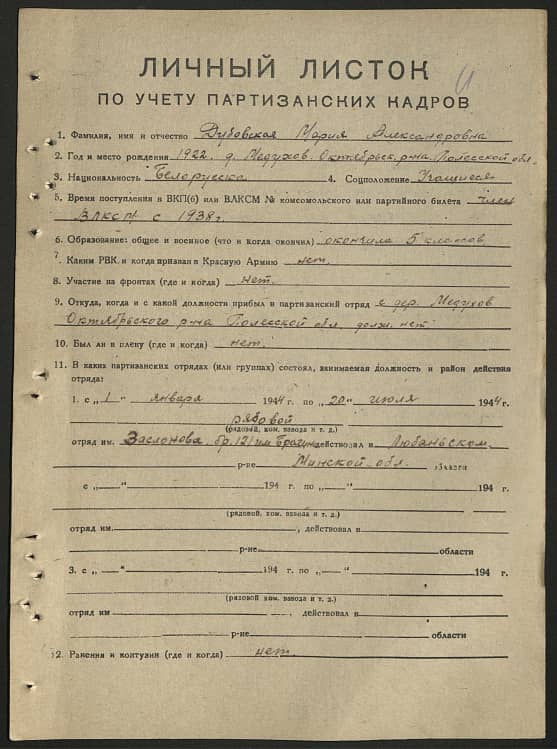 ЛИЧНЫЙ ЛИСТОК
ПО УЧЕТУ ПАРТИЗАНСКИХ КАДРОВ
1. Фамилия, имя и отчество Дубовская Мария Александровна
2. Год и место рождения 1922. д. Медухов. Октябрьск. р-на. Полесской обл.
3. Национальность Белорусска 4. Соцположение Учащиеся
5. Время поступления в ВКП(б) или ВЛКСМ № комсомольского или партийного билета член
ВЛКСМ с 1938 г.
6. Образование: общее и военное (что и когда окончил) окончила 5 классов
7. Каким РВК, и когда призван в Красную Армию нет.
8. Участие на фронтах (где и когда) нет.
9. Откуда, когда и с какой должности прибыл в партизанский отряд с дер. Медухов
Октябрьского р-на Полесской обл. должн. нет.
10. Был ли в плену (где и когда) нет.
11. В каких партизанских отрядах (или группах) состоял, занимаемая должность и район действия
отряда:
1. с „1" января 1944 г. по „20" июля 1944 г.
рядовой
(рядовой, ком. взвода и т. д.)
отряд им. Заслонова бр. 121 им Брагина действовал в Любаньском
р-не Минской обл. области
с „—" 194 г. по „—" 194 г.
(рядовой, ком. взвода и т. д.)
отряд им. , действовал в
р-не области
3. с „—" 194 г. по „—" 194 г.
(рядовой ком. взвода и т. д.)
отряд им , действовал в
р-не области
2. Ранения и контузии (где и когда) нет.